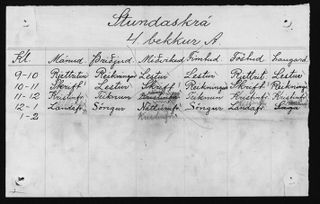 Stundaskrá
4. bekkur A.
Kl. Mánud Þriðjud Miðvikud Fimtud Föstud Laugard
9-10 Rjettritun Reikningur Lestur Lestur Rjettrit Lestur
10-11 Skrift Lestur Skrift Reikningur Skrift Reikningur
11-12 Kristinfr Teiknun Teiknun Kristinfr Kristinfr
12-1 Landafr Söngur Náttúrufr Söngur Landafr Saga
1-2 Kristinfr